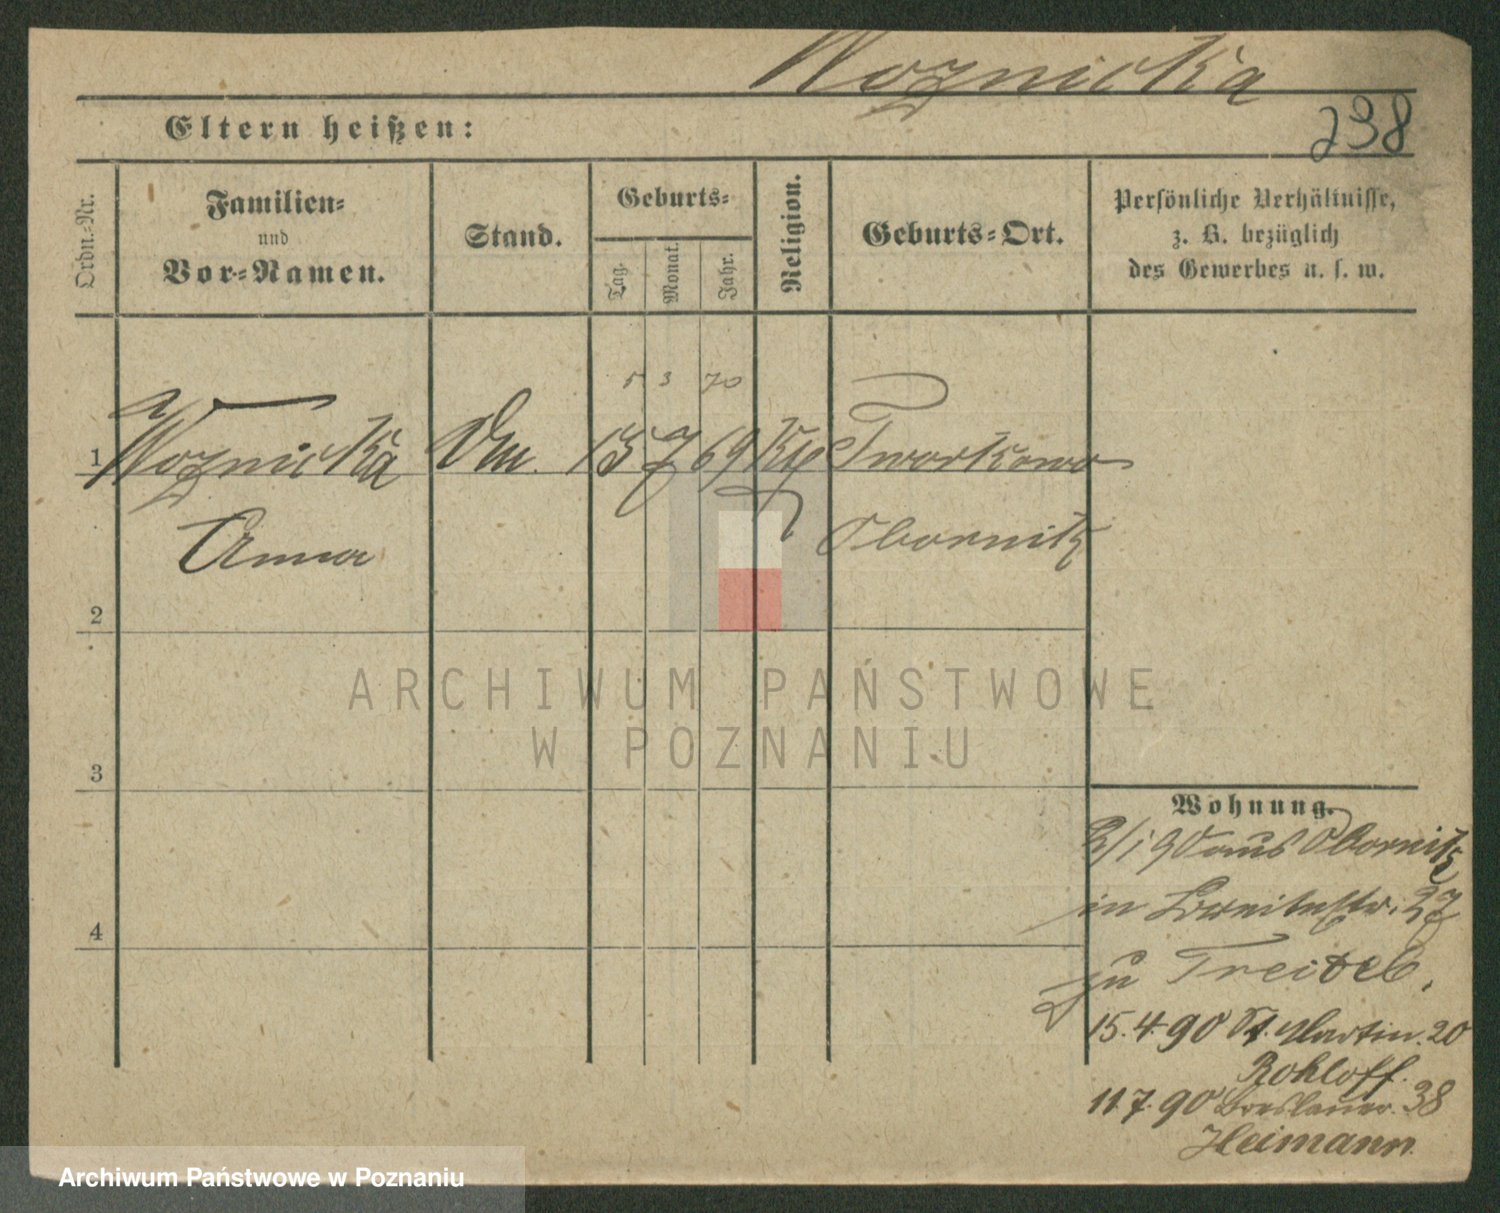 Woznicka
238
Eltern heißen:
Ordn.-Nr.
Familien=
und
Vor=Namen.
Stand.
Geburts=
Tag.
Monat.
Jahr.
Religion.
Geburts=Ort.
Persönliche Verhältnisse,
z. B. bezüglich
des Gewerbes u. s. w.
5 3 70
1 Woznicka 15 7 69 Kth Tworkowo
Anna Obornik
2
3
4
ARCHIWUM PAŃSTWOWE
W POZNANIU
Wohnung.
2/1 90 aus Obornik
in Breitestr. 27
zu Treitel.
15.4.90 St. Martin. 20
Rohloff.
11.7.90 Breslauer. 38
Heimann
Archiwum Państwowe w Poznaniu